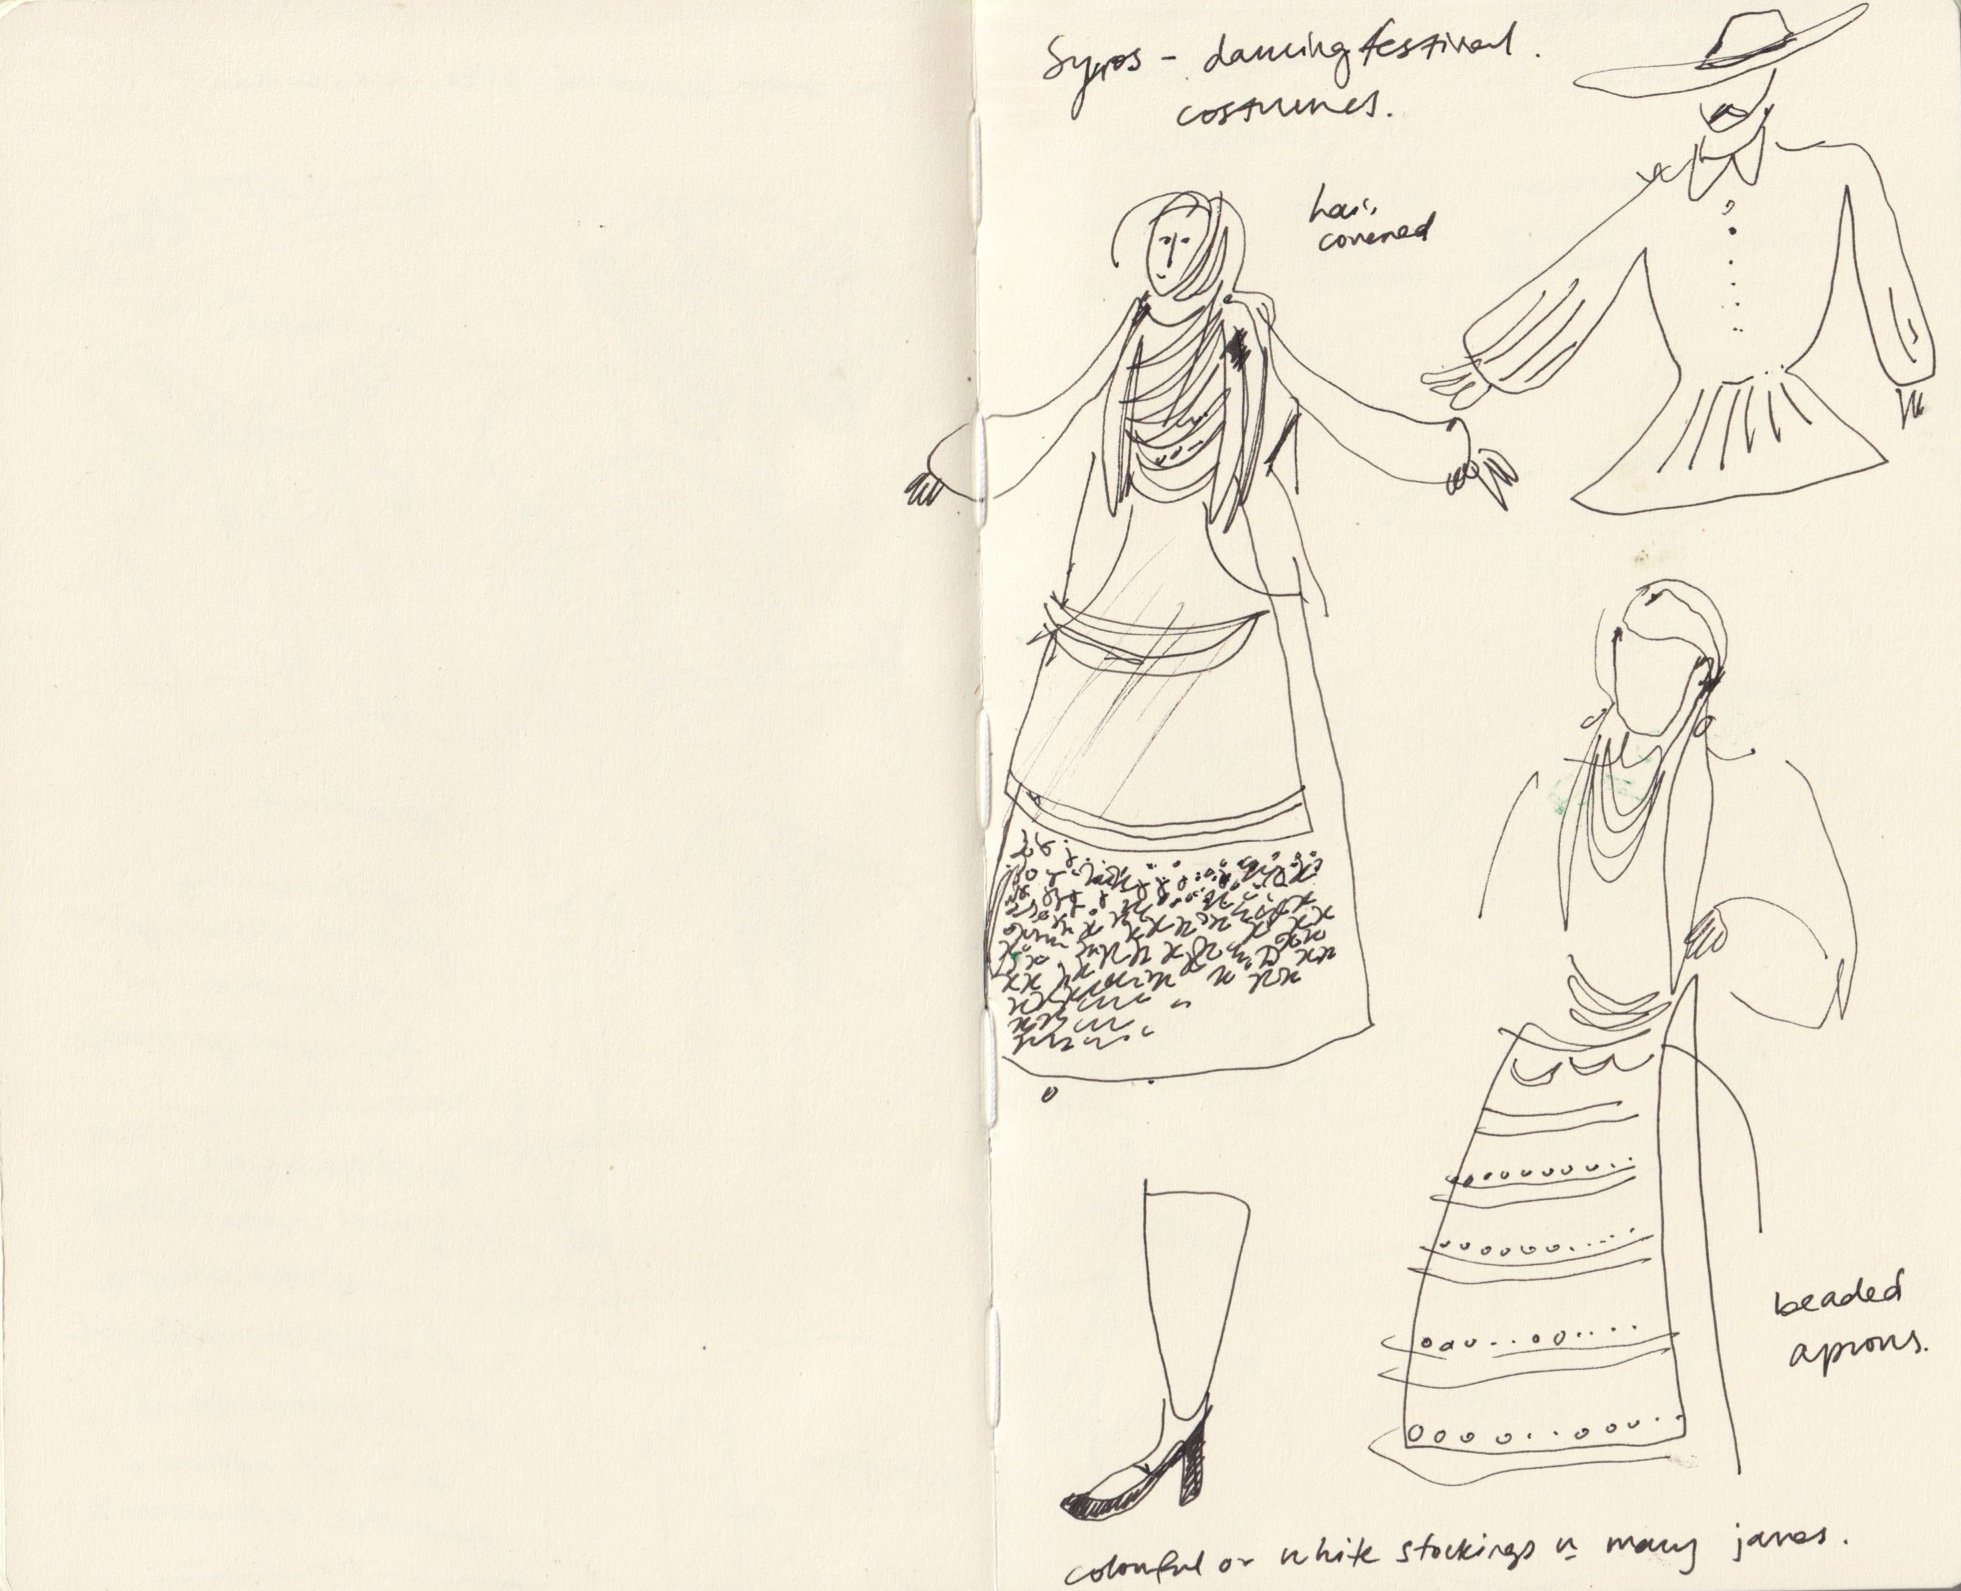 Syros - dancing festival.
costumes.
hair
covered
beaded
aprons.
colourful or white stockings many